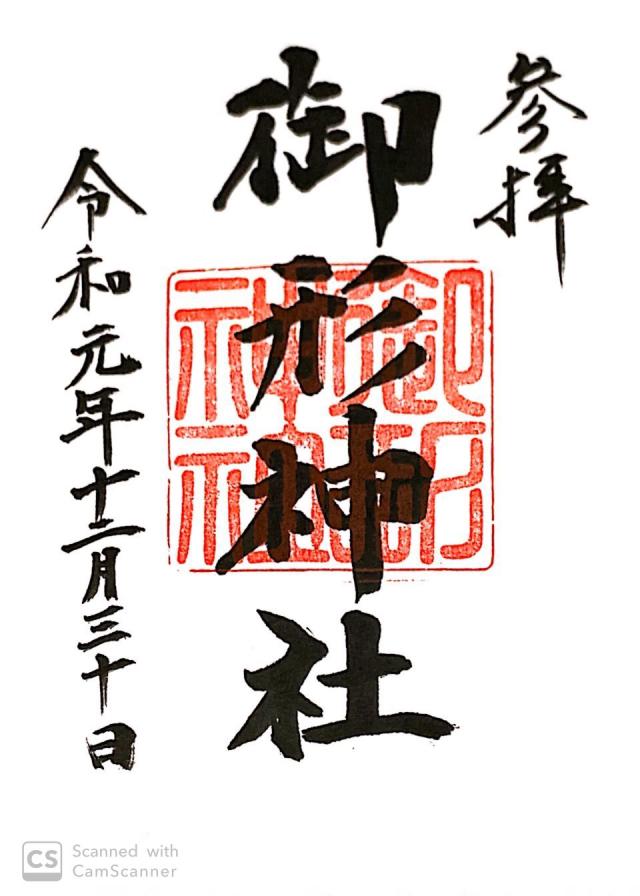 参拝
御形神社
令和元年十二月三十日
CS Scanned with
CamScanner